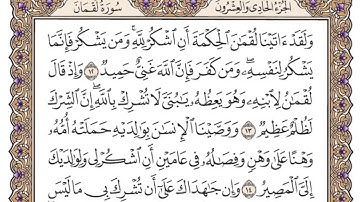 الجزء الحادي والعشرون سورة لقمان
وَلَقَدْ ءَاتَيْنَا لُقْمَٰنَ ٱلْحِكْمَةَ أَنِ ٱشْكُرْ لِلَّهِ ۚ وَمَن يَشْكُرْ فَإِنَّمَا
يَشْكُرُ لِنَفْسِهِۦ ۖ وَمَن كَفَرَ فَإِنَّ ٱللَّهَ غَنِىٌّ حَمِيدٌ ١٢ وَإِذْ قَالَ
لُقْمَٰنُ لِٱبْنِهِۦ وَهُوَ يَعِظُهُۥ يَٰبُنَىَّ لَا تُشْرِكْ بِٱللَّهِ ۖ إِنَّ ٱلشِّرْكَ
لَظُلْمٌ عَظِيمٌ ١٣ وَوَصَّيْنَا ٱلْإِنسَٰنَ بِوَٰلِدَيْهِ حَمَلَتْهُ أُمُّهُۥ
وَهْنًا عَلَىٰ وَهْنٍ وَفِصَٰلُهُۥ فِى عَامَيْنِ أَنِ ٱشْكُرْ لِى وَلِوَٰلِدَيْكَ
إِلَىَّ ٱلْمَصِيرُ ١٤ وَإِن جَٰهَدَاكَ عَلَىٰٓ أَن تُشْرِكَ بِى مَا لَيْسَ